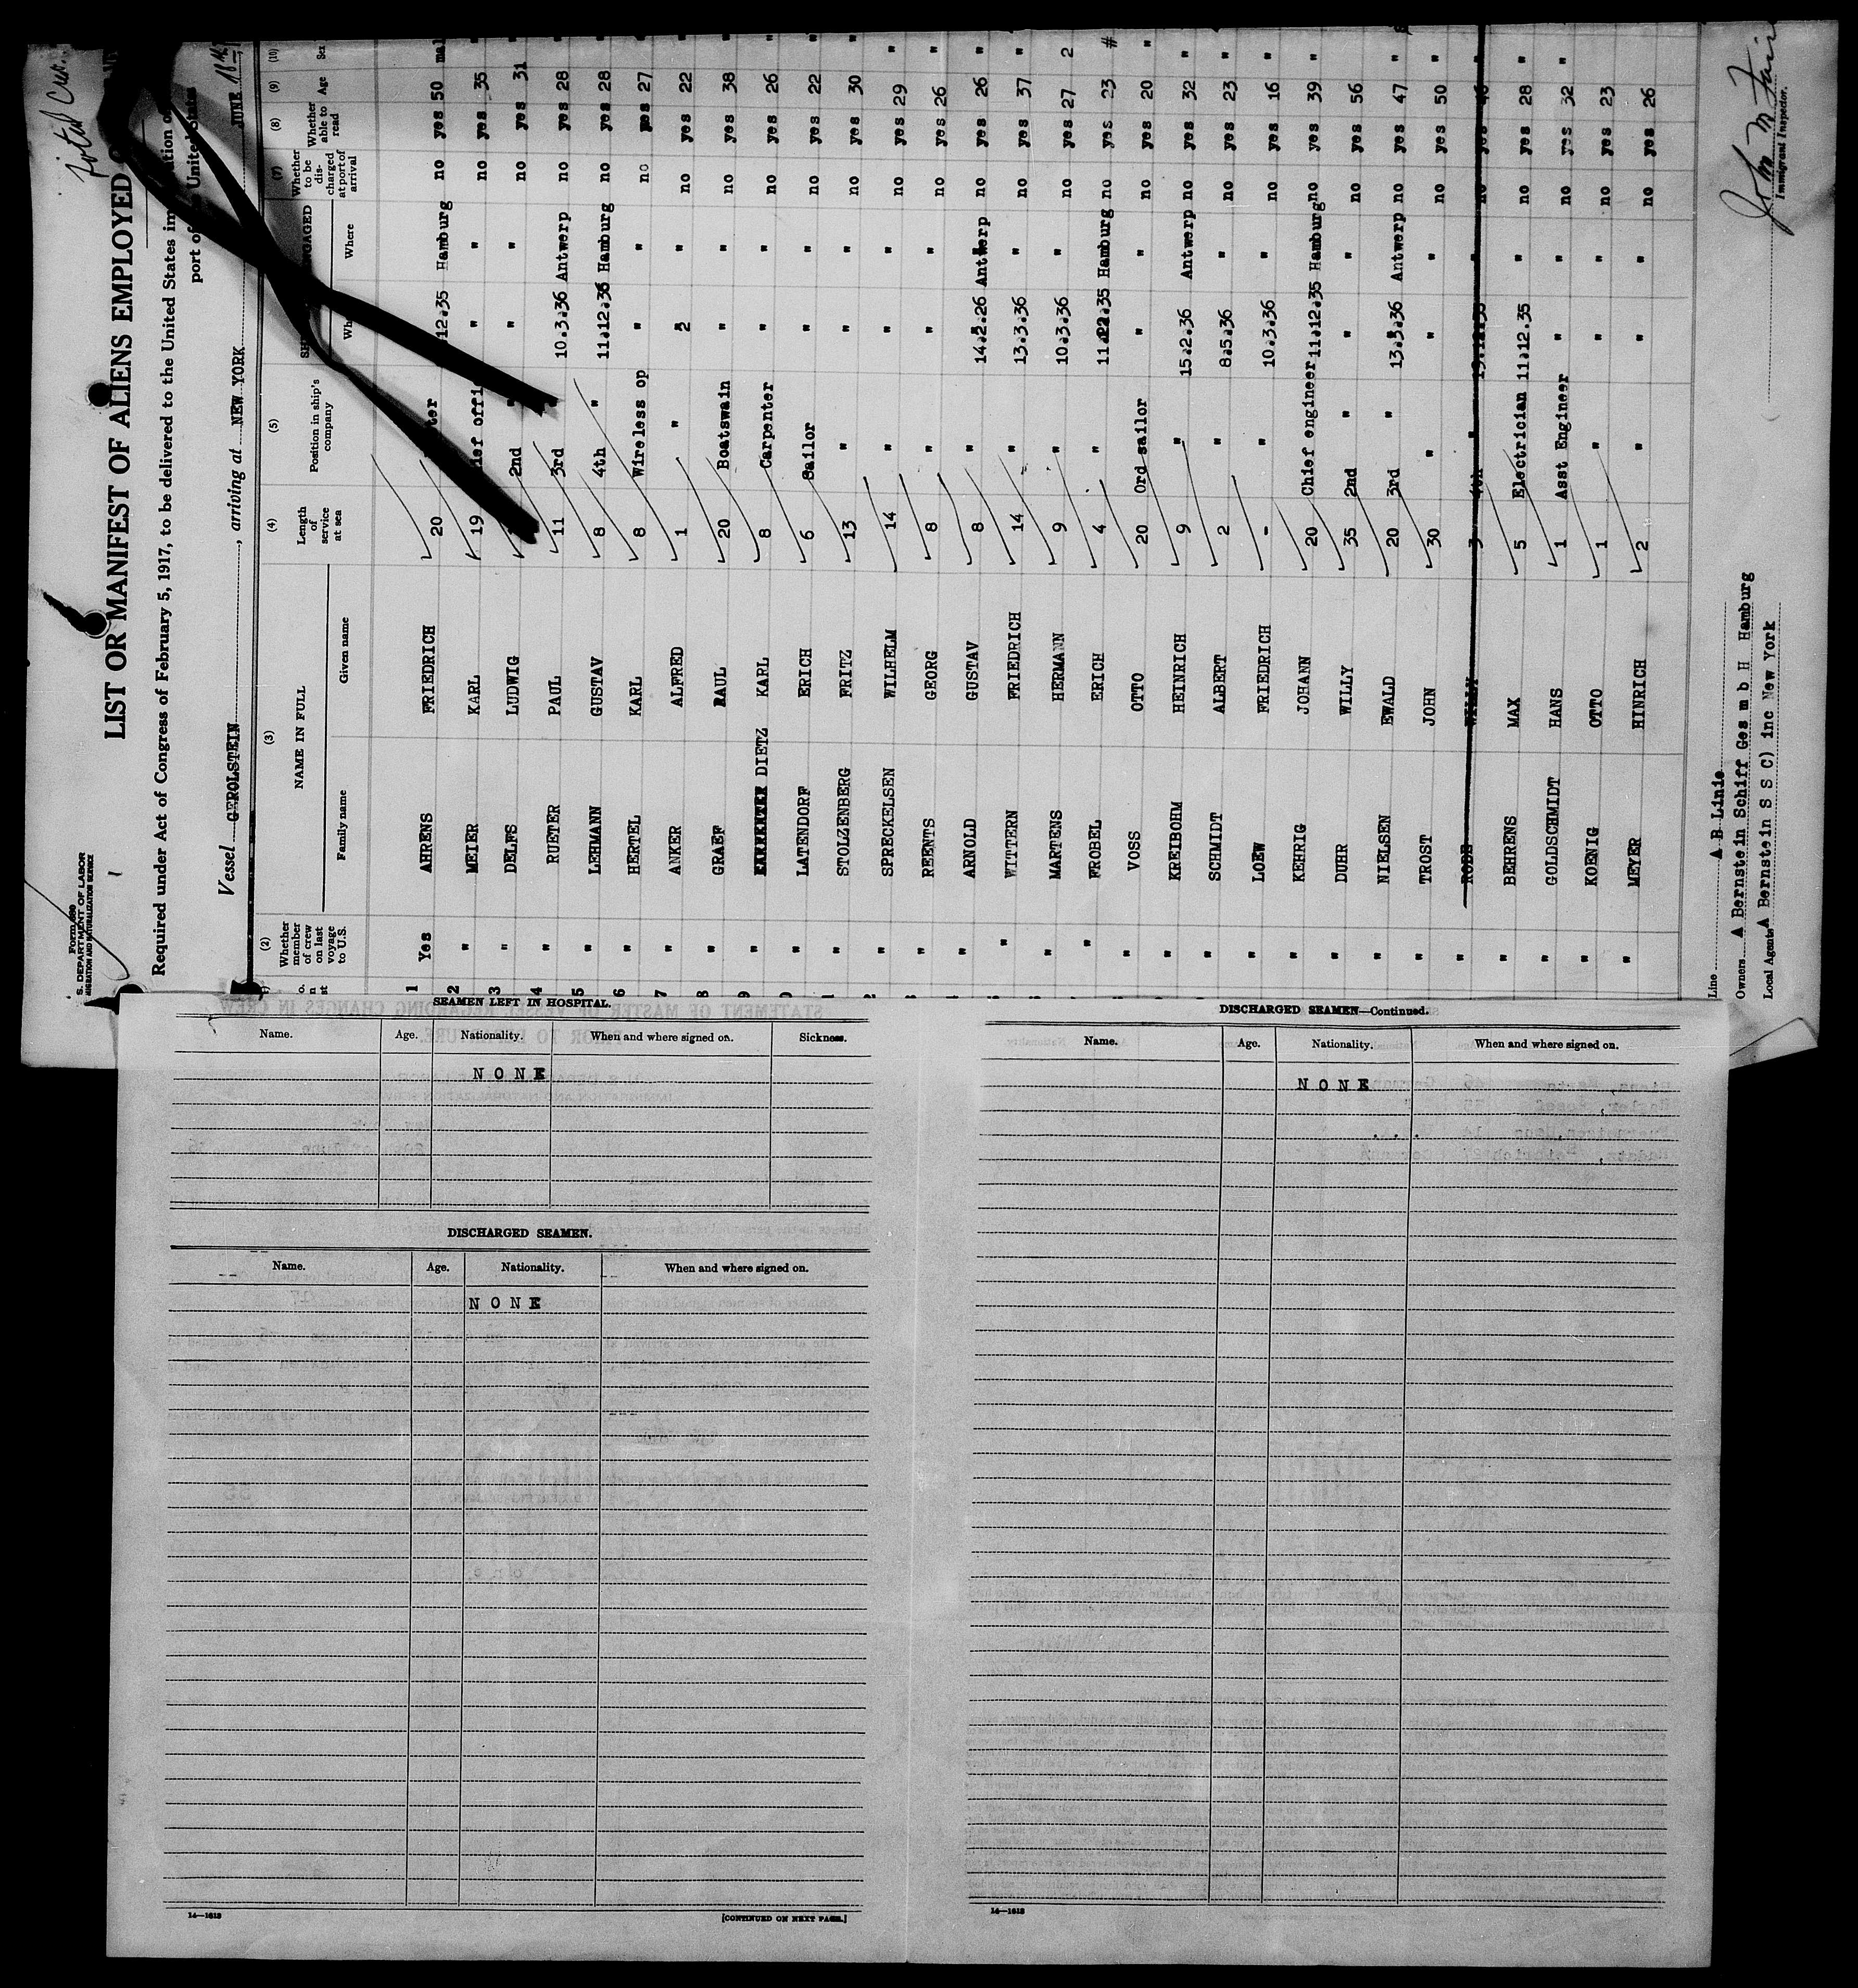 FORM 680
S. DEPARTMENT OF LABOR
MIGRATION AND NATURALIZATION SERVICE
LIST OR MANIFEST OF ALIENS EMPLOYED
Required under Act of Congress of February 5, 1917, to be delivered to the United States
port of United States
Vessel GEROLSTEIN, arriving at NEW YORK JUNE
(2) (3) (4) (5) (7) (8) (9) (10)
Whether member of crew on last voyage to U.S. NAME IN FULL Length of service at sea Position in ship's company ENGAGED Whether to be discharged at port of arrival Whether able to read Age Sex
Family name Given name Where
1 Yes AHRENS FRIEDRICH 20 12.35 Hamburg no yes 50
2 " MEIER KARL 19 " " no yes 35 "
3 " DELFS LUDWIG 2nd " " " no yes 31 "
4 " RUETER PAUL 11 3rd " 10.3.36 Antwerp no yes 28 "
5 " LEHMANN GUSTAV 8 4th " 11.12.36 Hamburg no yes 28 "
6 " HERTEL KARL 8 Wireless op " " no yes 27 "
7 " ANKER ALFRED 1 " 2 " no yes 22 "
8 " GRAEF RAUL 20 Boatswain " " no yes 38 "
9 " DIETZ KARL 8 Carpenter " " no yes 26 "
0 " LATENDORF ERICH 6 Sailor " " no yes 22 "
1 " STOLZENBERG FRITZ 13 " " " no yes 30 "
2 " SPRECKELSEN WILHELM 14 " " " no yes 29 "
3 " REENTS GEORG 8 " " " no yes 26 "
4 " ARNOLD GUSTAV 8 " 14.2.26 Antwerp no yes 26 "
" WITTERN FRIEDRICH 14 " 13.3.36 " no yes 37 "
" MARTENS HERMANN 9 " 10.3.36 " no yes 27 2
" FROBEL ERICH 4 " Hamburg no yes 23 #
" VOSS OTTO 20 Ord sailor " " no yes 20 "
" KREIBOHM HEINRICH 9 " 15.2.36 Antwerp no yes 32 "
" SCHMIDT ALBERT 2 " 8.5.36 " no yes 23 "
" LOEW FRIEDRICH - " 10.3.36 " no yes 16 "
" KEHRIG JOHANN 20 Chief engineer 11.12.35 Hamburg no yes 39 "
" DUHR WILLY 35 2nd " " " no yes 56
" NIELSEN EWALD 20 3rd " 13.3.36 Antwerp no yes 47 "
" TROST JOHN 30 " " " no yes 50 "
" RODE WILLY 3 4th " " no yes 46 "
" BEHRENS MAX 5 Electrician 11.12.35 " no yes 28 "
" GOLDSCHMIDT HANS 1 Asst Engineer " " no yes 32 "
" KOENIG OTTO 1 " " " no yes 23
" MEYER HINRICH 2 " " " no yes 26
Line A B Linie
Owners A Bernstein Schiff Ges m b H Hamburg
Local Agents A Bernstein S S C) inc New York
Immigrant Inspector.
SEAMEN LEFT IN HOSPITAL.
Name. Age. Nationality. When and where signed on. Sickness.
NONE
DISCHARGED SEAMEN.
Name. Age. Nationality. When and where signed on.
NONE
14—1613 [CONTINUED ON NEXT PAGE.]
DISCHARGED SEAMEN—Continued.
Name. Age. Nationality. When and where signed on.
NONE
14—1613